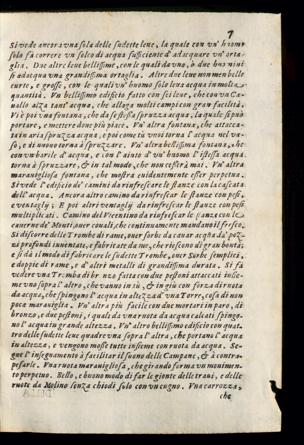 7
Si vede ancora vna sola delle sudette leue, la quale con vn' huomo
solo fà correre vn solco di acqua sufficiente d' adacquare vn' orta-
glia. Due altre leue bellissime, con le quali da vno, ò due huomini
si adacqua vna grandissima ortaglia. Altre due leue non men belle
curte, e grosse, con le quali vn' huomo solo leua acqua in molta
quantità. Vn bellissimo edificio fatto con sei leue, che con vn Ca-
uallo alza tant' acqua, che alloga molti campi con gran facilità.
Vi è poi vna fontana, che da se stessa spruzza acqua, la quale si può
portare, e mettere doue più piace. Vn' altra fontana, che attacca-
ta in aria spruzza acqua, e poi come tù vuoi torna l'acqua nel va-
so, e di nuouo torna à spruzzare. Vn' altra bellissima fontana, che
con vn barile d' acqua, e con l'aiuto d' vn' huomo l'istessa acqua
torna à spruzzare, & in tal modo, che non cesserà mai. Vn' altra
marauigliosa fontana, che mostra euidentemente esser perpetua.
Si vede l' edificio de' camini da rinfrescare le stanze con la cascata
dell' acqua. Ancora altro camino da rinfrescar le stanze con pesi,
e ventagli; E poi altri ventagli da rinfrescar le stanze con pesi
multiplicati. Camino del Vicentino da rinfrescar le stanze con le
cauerne de' Monti, ouer couali, che continuamente mandano il fresco.
Si discorre delle Trombe di rame, ouer sorbe da cauar acqua da' poz-
zi profondi inuentate, e fabricate da me, che riescono di gran bontà;
e si dà il modo di fabricare le sudette Trombe, ouer Sorbe semplici,
e doppie di rame, e d' altri metalli di grandissima durata. Si fà
vedere vna Tromba di bronzo fatta con due pestoni attaccati insie-
me vno sopra l' altro, che vanno in sù, & in giù con forza di ruota
da acqua, che spingono l'acqua in alto à vna Torre, cosa di non
poca marauiglia. Vn' altra più facile con due mortari in paro, di
bronzo, e due pestoni, i quali da vna ruota da acqua calcati spingo-
no l'acqua in grande altezza. Vn' altro bellissimo edificio con quat-
tro delle sudette leue quadre vna sopra l' altra, che portano l'acqua
in altezza, e vengono mosse tutte insieme con ruota da acqua. Se-
gue l'insegnamento à facilitar il suono delle Campane, & à contra-
pesarle. Vna ruota marauigliosa, che girando forma vn mouimen-
to perpetuo. Bello, e buono modo di far le gionte delle traui, e delle
ruote da Molino senza chiodi solo con vn cugno. Vna carrozza,
che